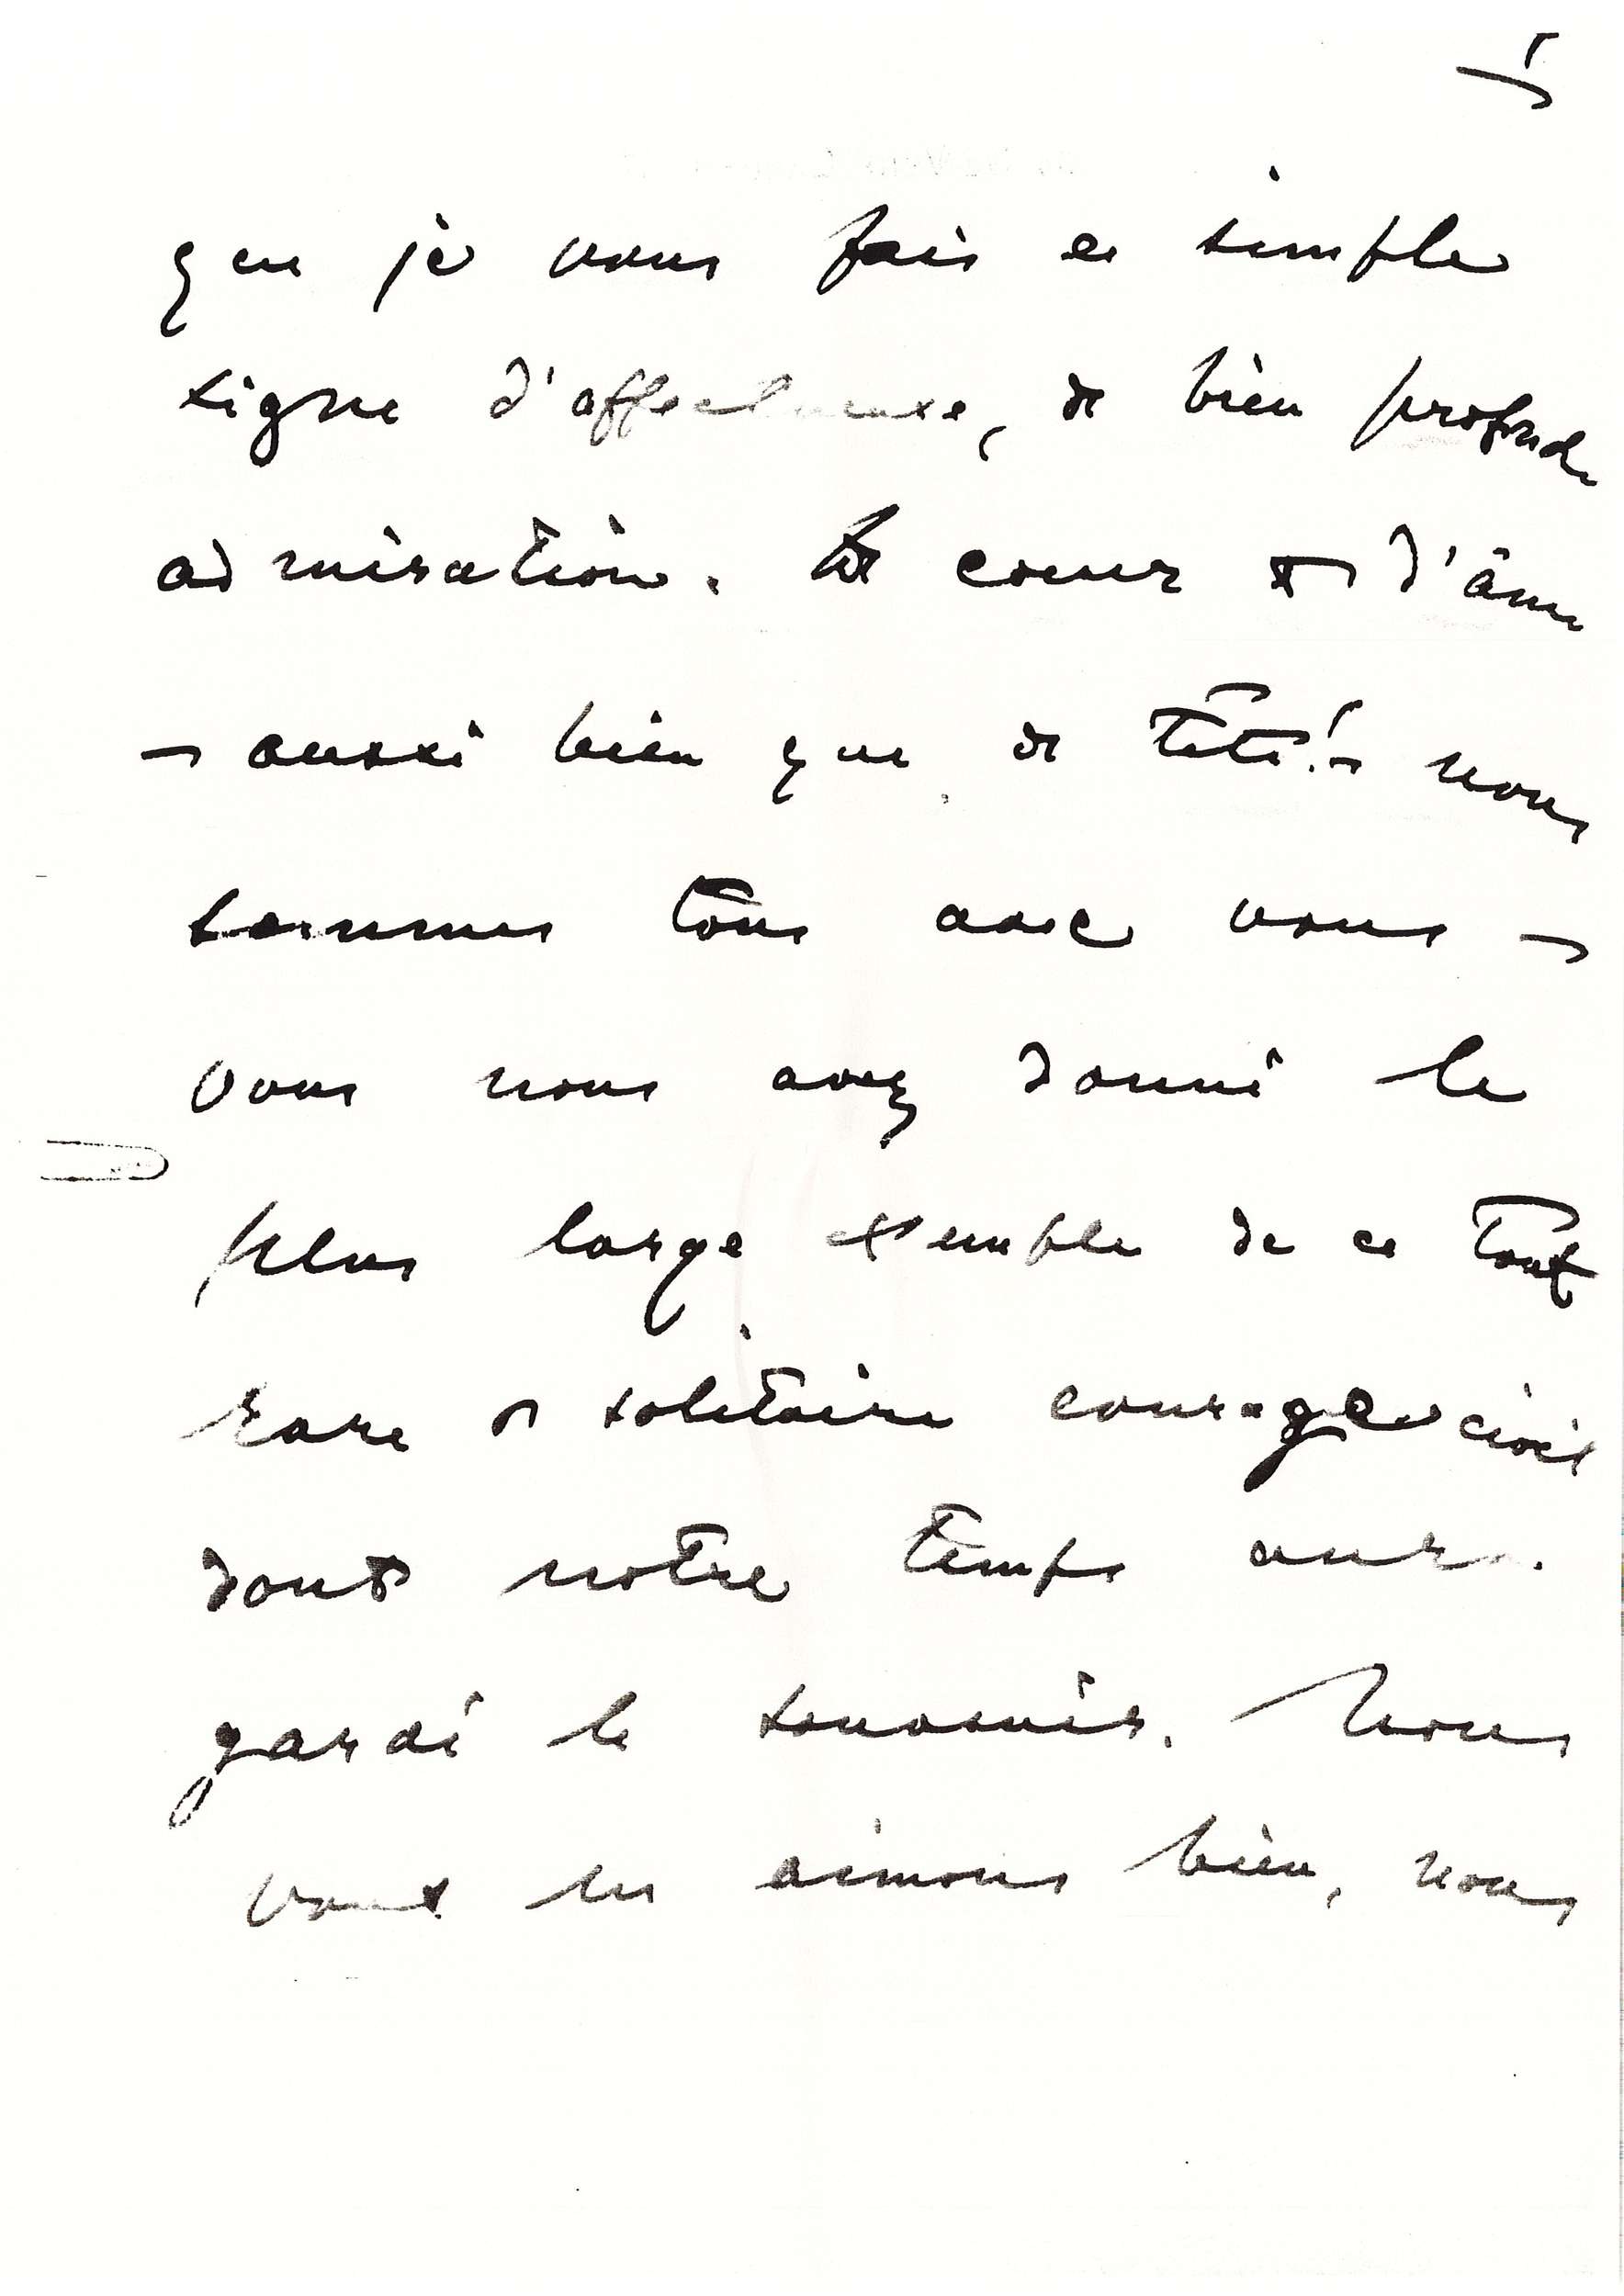 que je vous fais ce simple
signe d'affectueuse, de bien profonde
admiration. De cœur et d'âme
- aussi bien que de tête ! - nous
sommes tous avec vous -
vous nous avez donné le
plus large exemple de ce tout
rare et solitaire courage civil
dont notre temps aura
gardé le souvenir. Nous
vous en aimons bien, nous